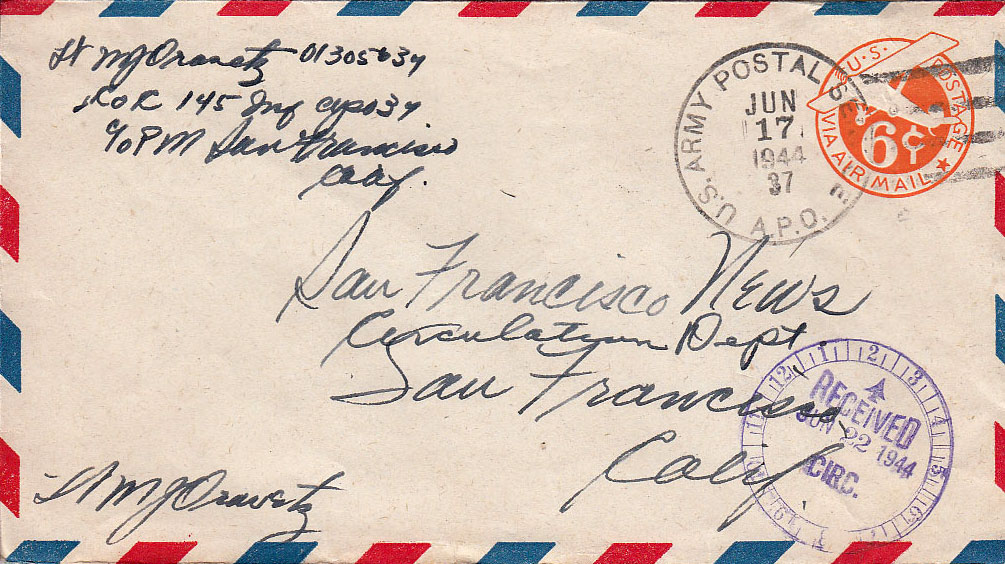 Lt MJ Oravetz 01305634
Co K 145 Inf APO 37
c/o PM San Francisco
Calif.
U.S. ARMY POSTAL SE
JUN
17
1944
37
A.P.O.
U.S. POSTAGE
6¢
VIA AIR MAIL
San Francisco News
Circulation Dept
San Francisco
Calif
Lt MJ Oravetz
12 1 2 3 4 5 6
RECEIVED
JUN 22 1944
CIRC.